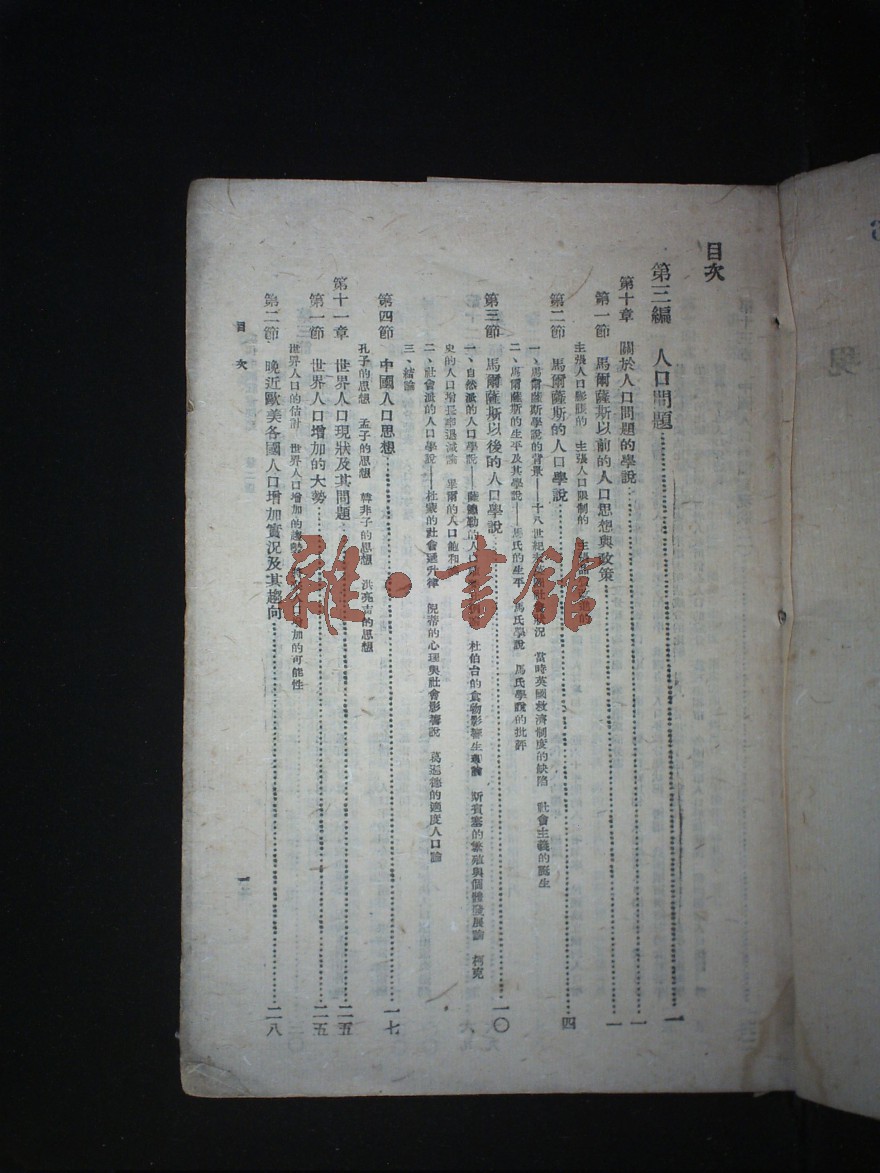 目次
第三編 人口問題……一
第十章 關於人口問題的學說……一
第一節 馬爾薩斯以前的人口思想與政策……一
主張人口膨脹的 主張人口限制的 主張
第二節 馬爾薩斯的人口學說……四
一、馬爾薩斯學說的背景——十八世紀 狀況 當時英國救濟制度的缺陷 社會主義的誕生
二、馬爾薩斯的生平及其學說——馬氏的生平 馬氏學說 馬氏學說的批評
第三節 馬爾薩斯以後的人口學說……一〇
一、自然派的人口學說——薩德勒的人口 杜伯台的食物影響生 論 斯賓塞的繁殖與個體發展論 柯克
史的人口增長率遞減論 的人口飽和
二、社會派的人口學說——杜蒙的社會 律 倪蒂的心理與社會影響說 的適度人口論
三、結論
第四節 中國人口思想……一七
孔子的思想 孟子的思想 韓非子的思想 洪亮吉的思想
第十一章 世界人口現狀及其問題……二五
第一節 世界人口增加的大勢……二五
世界人口的估計 世界人口增加的趨勢 人口增加的可能性
第二節 晚近歐美各國人口增加實況及其趨向……二八
目 次
一
雜·書館